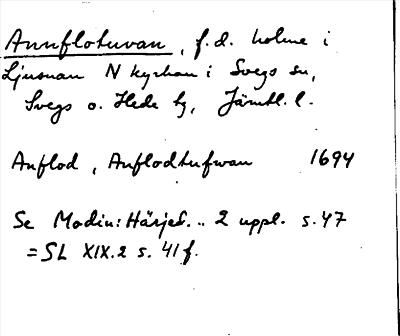 Annflotuvan, f.d. holme i
Ljusnan N kyrkan i Svegs sn,
Svegs o. Hede tg, Jämtl. l.
Anflod, Anflodtufwan 1694
Se Modin: Härjed... 2 uppl. s. 47
= SL XIX.2 s. 41 f.